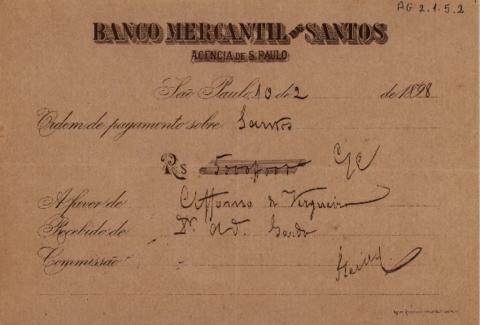 AG 2.1.5.2
BANCO MERCANTIL DE SANTOS
AGENCIA DE S. PAULO
São Paulo, 10 de 2 de 1898
Ordem de pagamento sobre Santos
Rs C/C
A favor de Affonso de Vergueiro
Recebido de Dr. Ad. Gordo
Commissão